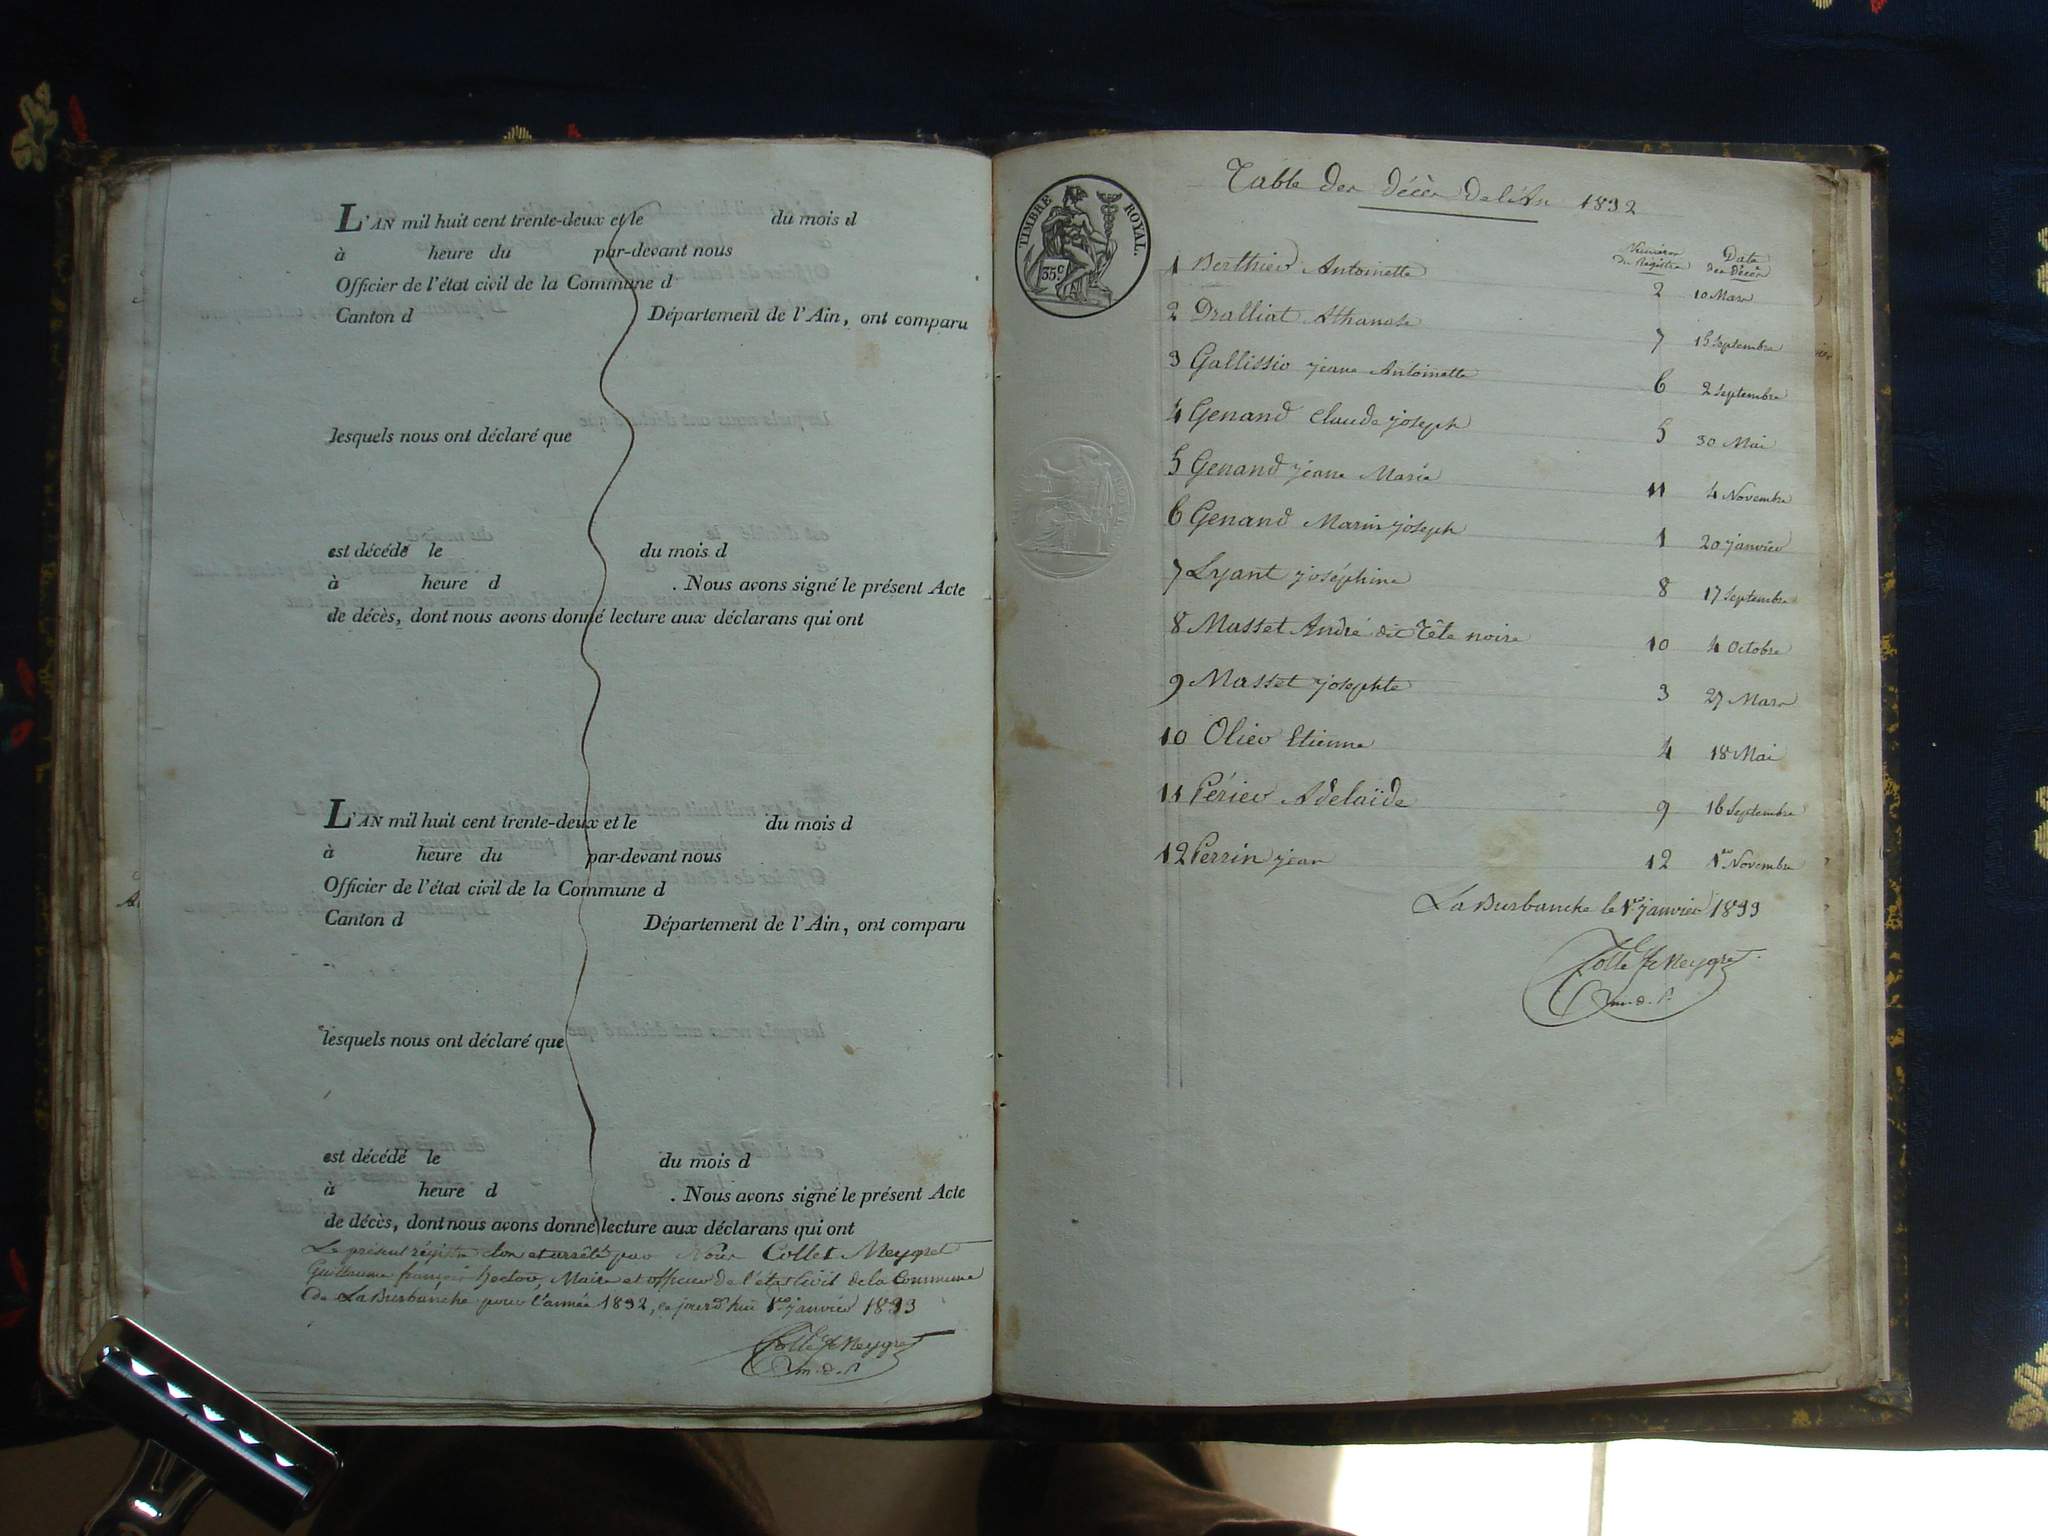 L'AN mil huit cent trente-deux et le du mois d
à heure du par-devant nous
Officier de l'état civil de la Commune d
Canton d Département de l'Ain, ont comparu
lesquels nous ont déclaré que
est décédé le du mois d
à heure d . Nous avons signé le présent Acte
de décès, dont nous avons donné lecture aux déclarans qui ont
L'AN mil huit cent trente-deux et le du mois d
à heure du par-devant nous
Officier de l'état civil de la Commune d
Canton d Département de l'Ain, ont comparu
lesquels nous ont déclaré que
est décédé le du mois d
à heure d . Nous avons signé le présent Acte
de décès, dont nous avons donné lecture aux déclarans qui ont
Le présent régistre clos et arrêté par Nous Collet Meygret
Guillaume françois hector, Maire et officier de l'état Civil de la Commune
de La Burbanche pour l'année 1832, ce jourd'hui 1er janvier 1833
Collet Meygret
TIMBRE ROYAL.
35 c
Table des décès De l'An 1832
Numéros Date
Du Registre des décès
1 Berthier Antoinette 2 10 Mars
2 Dralliat Athanase 7 15 Septembre
3 Gallissio jeane Antoinette 6 2 Septembre
4 Genand Claude joseph 5 30 Mai
5 Genand jeane Marie 11 4 Novembre
6 Genand Marin joseph 1 20 janvier
7 Lyant joséphine 8 17 Septembre
8 Masset André dit Tête noire 10 4 Octobre
9 Masset josephte 3 27 Mars
10 Olier Etienne 4 18 Mai
11 Périer Adelaïde 9 16 Septembre
12 Perrin jean 12 1er Novembre
La Burbanche le 1er janvier 1833
Collet Meygret